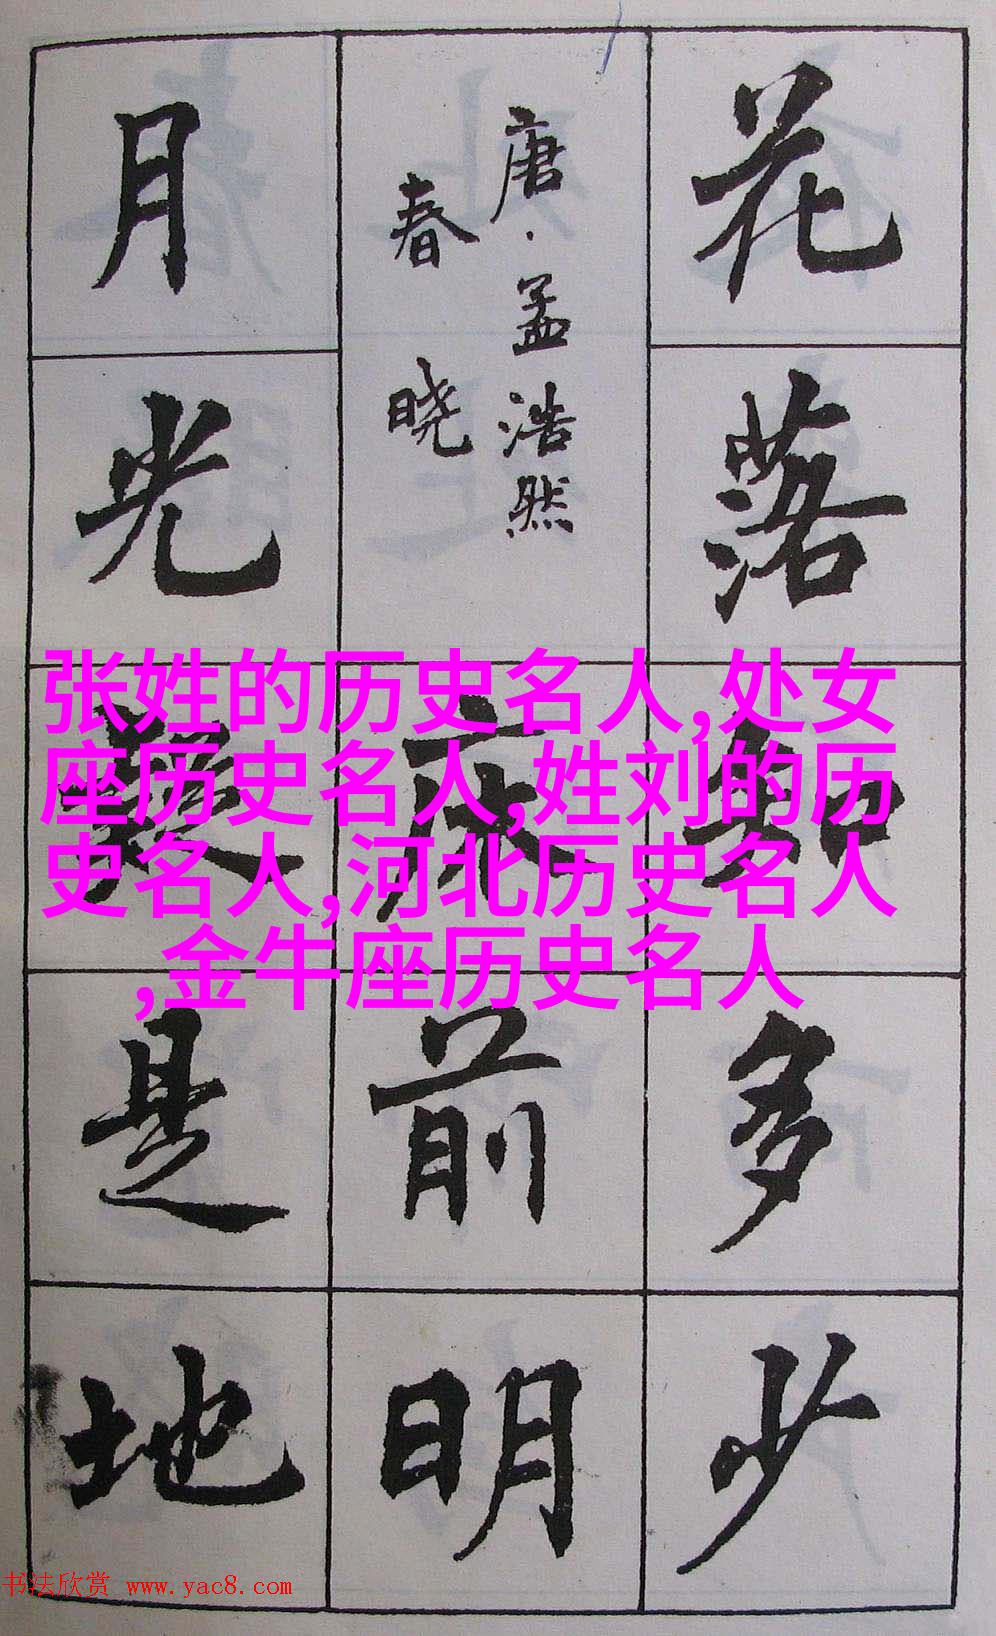 花落知多少
唐·孟浩然
春晓
床前明
月光疑是地
张姓的历史名人,处女
座历史名人,姓刘的历
史名人,河北历史名人
,金牛座历史名人
书法欣赏 www.yac8.com